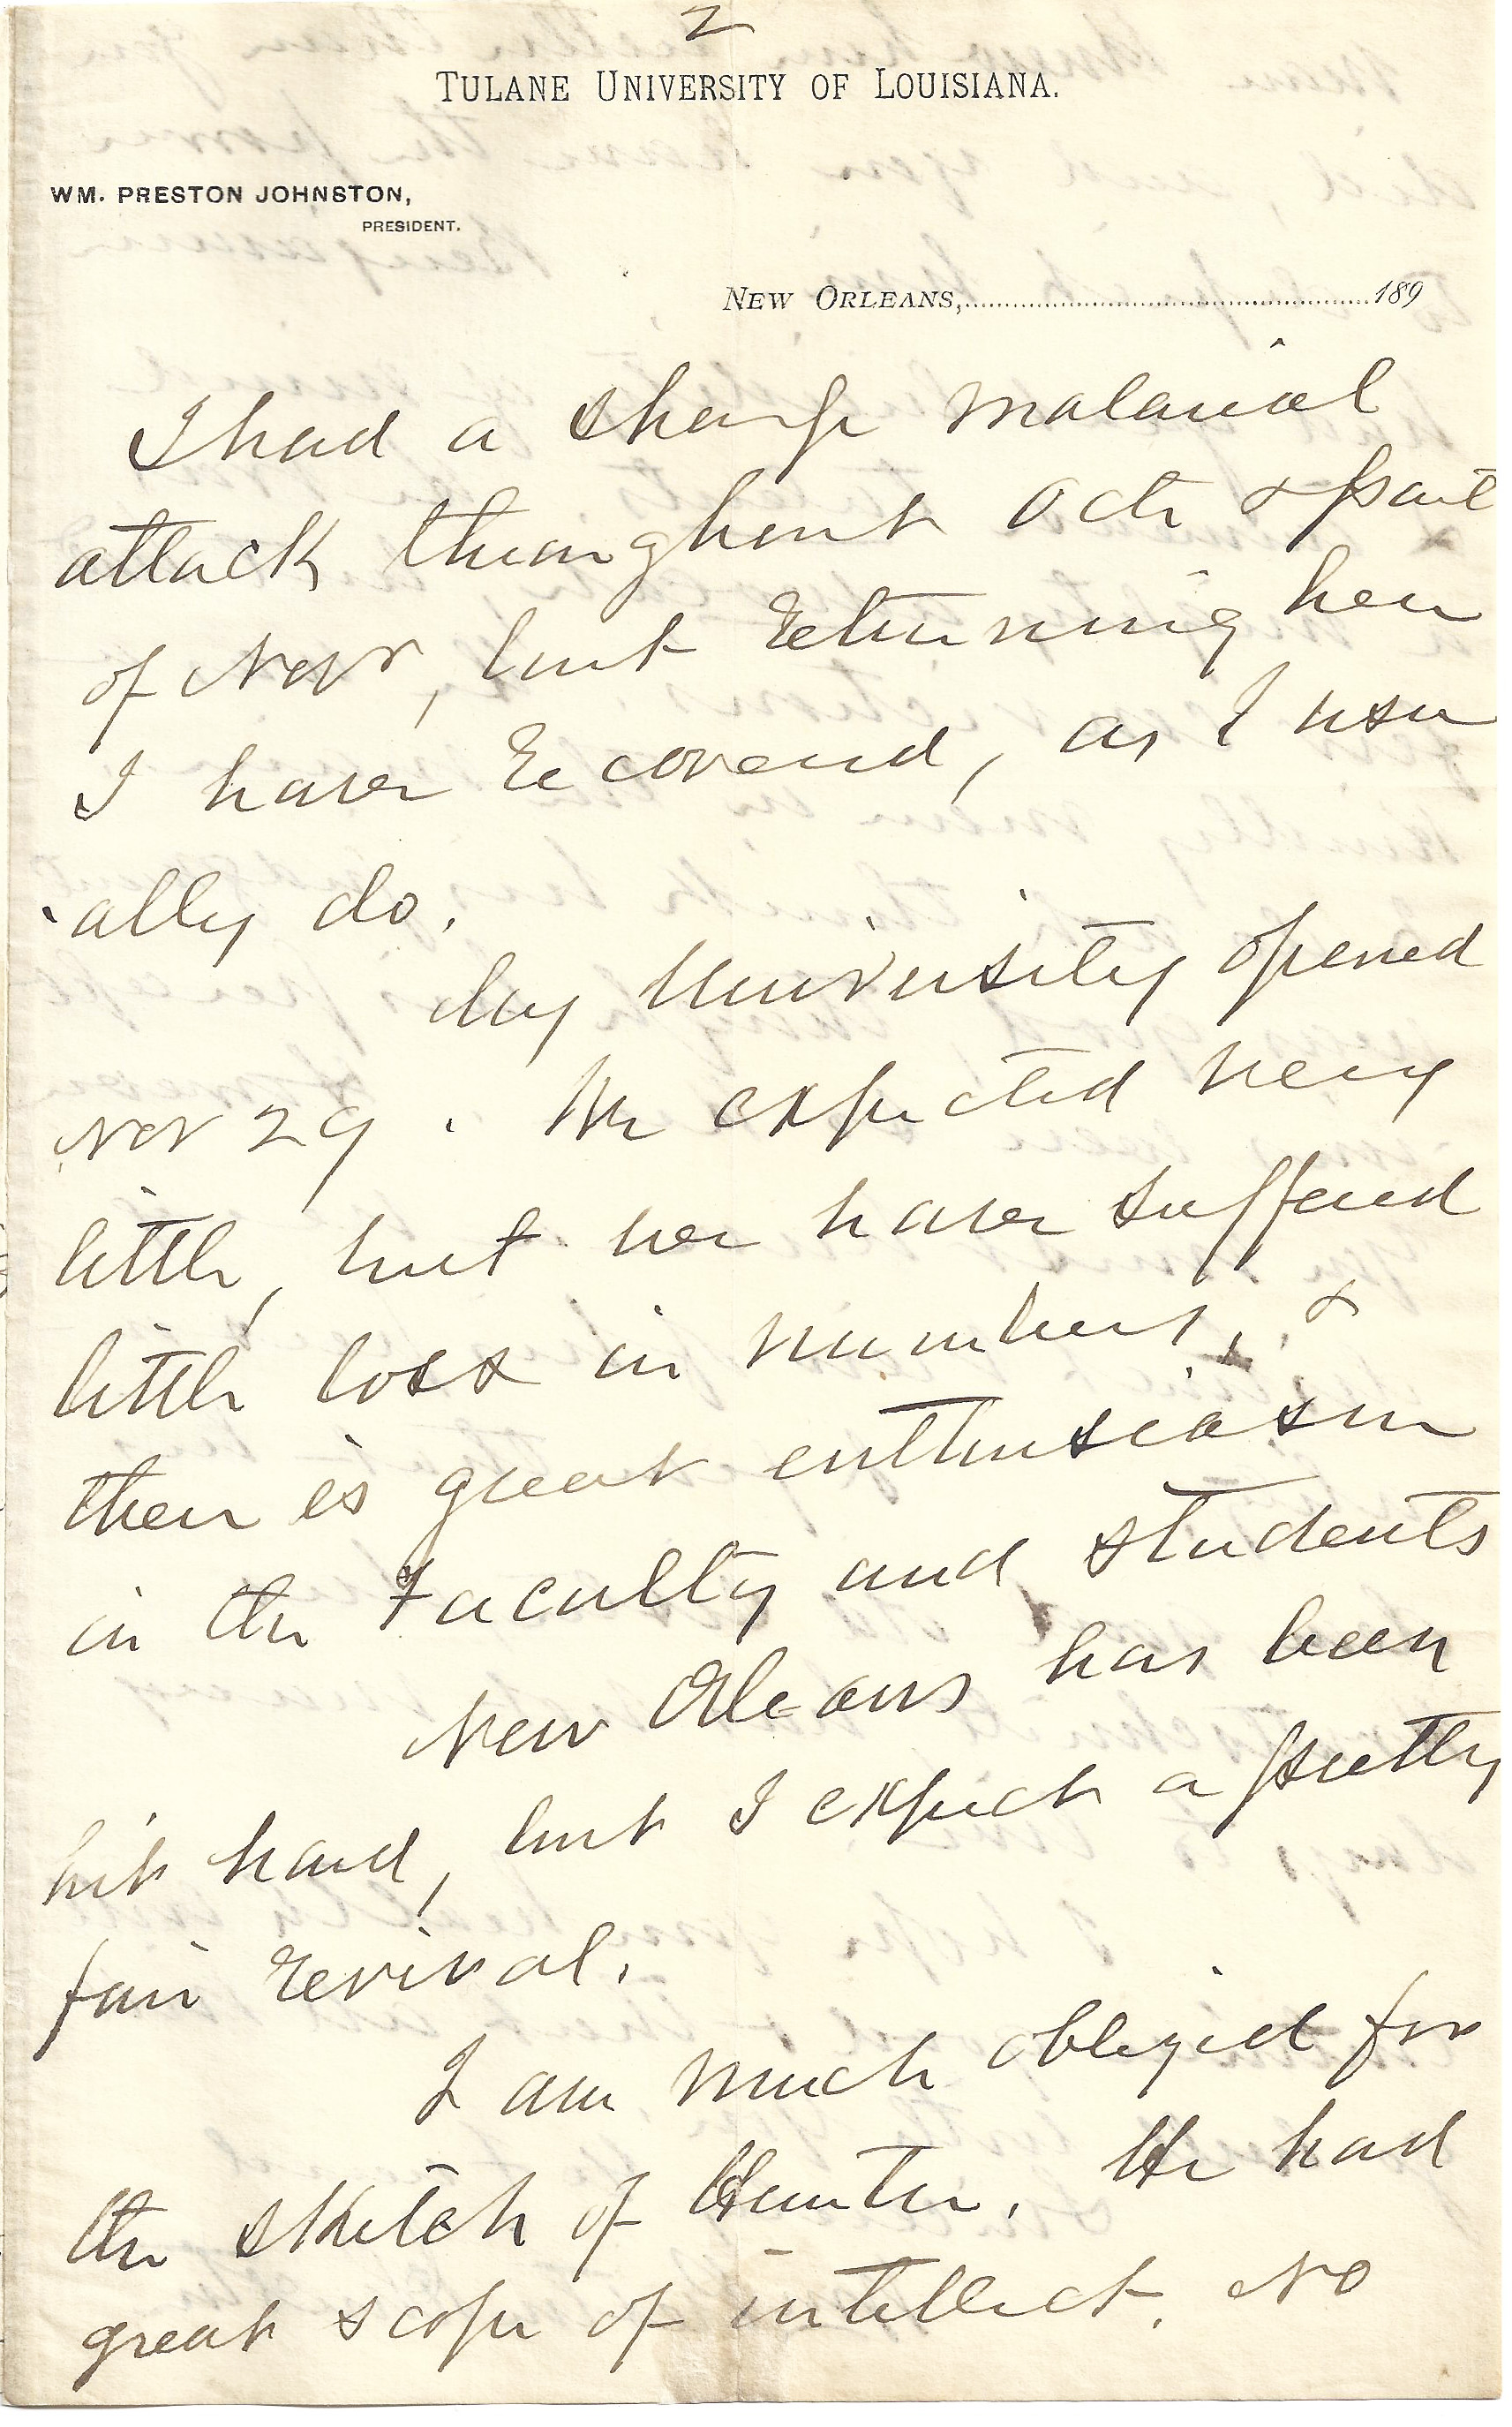 2
TULANE UNIVERSITY OF LOUISIANA.
WM. PRESTON JOHNSTON,
PRESIDENT.
NEW ORLEANS,..............................189
I had a sharp malarial
attack throughout Oct & part
of Novr, but returning here
I have recovered, as I usu
-ally do.
My University opened
Nov 29. We expected very
little, but we have suffered
little loss in numbers, &
there is great enthusiasm
in the Faculty and students
New Orleans has been
hit hard, but I expect a pretty
fair revival.
I am much obliged for
the sketch of Hunter. He had
great scope of intellect. No